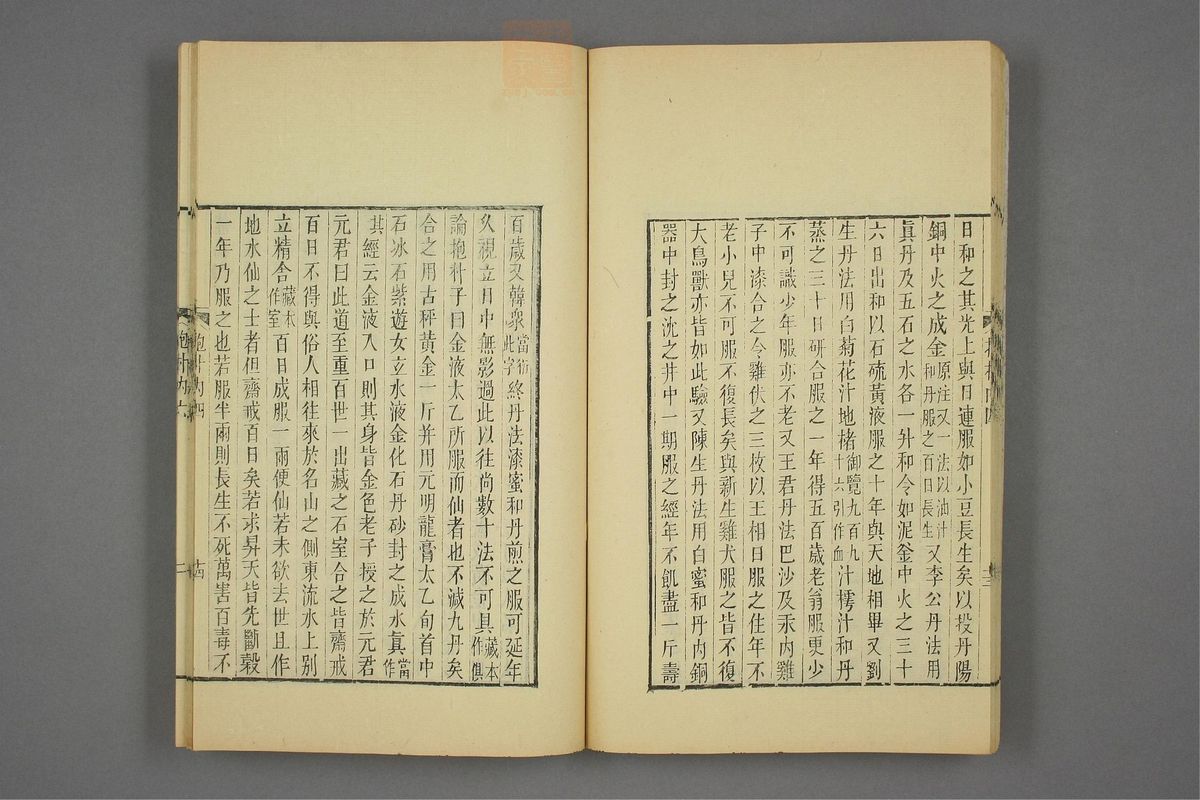 日和之其光上與日連服如小豆長生矣以投丹陽
銅中火之成金原注又一法以油汁和丹服之百日長生又李公丹法用
眞丹及五石之水各一升和令如泥釜中火之三十
六日出和以石硫黃液服之十年與天地相畢又劉
生丹法用白菊花汁地楮御覽九百九十六引作血汁樗汁和丹
蒸之三十日硏合服之一年得五百歲老翁服更少
不可識少年服亦不老又王君丹法巴沙及汞內雞
子中漆合之令雞伏之三枚以王相日服之住年不
老小兒不可服不復長矣與新生雞犬服之皆不復
大鳥獸亦皆如此驗又陳生丹法用白蜜和丹內銅
器中封之沈之井中一期服之經年不飢盡一斤壽
百歲又韓衆當衍此字終丹法漆蜜和丹煎之服可延年
久視立日中無影過此以往尚數十法不可具藏本作俱
論抱朴子曰金液太乙所服而仙者也不減九丹矣
合之用古秤黃金一斤并用元明龍膏太乙旬首中
石冰石紫遊女立水液金化石丹砂封之成水眞當作
其經云金液入口則其身皆金色老子授之於元君
元君曰此道至重百世一出藏之石室合之皆齋戒
百日不得與俗人相往來於名山之側東流水上別
立精舍藏本作室百日成服一兩便仙若未欲去世且作
地水仙之士者但齋戒百日矣若求昇天皆先斷穀
一年乃服之也若服半兩則長生不死萬害百毒不
抱朴內四
抱朴內六